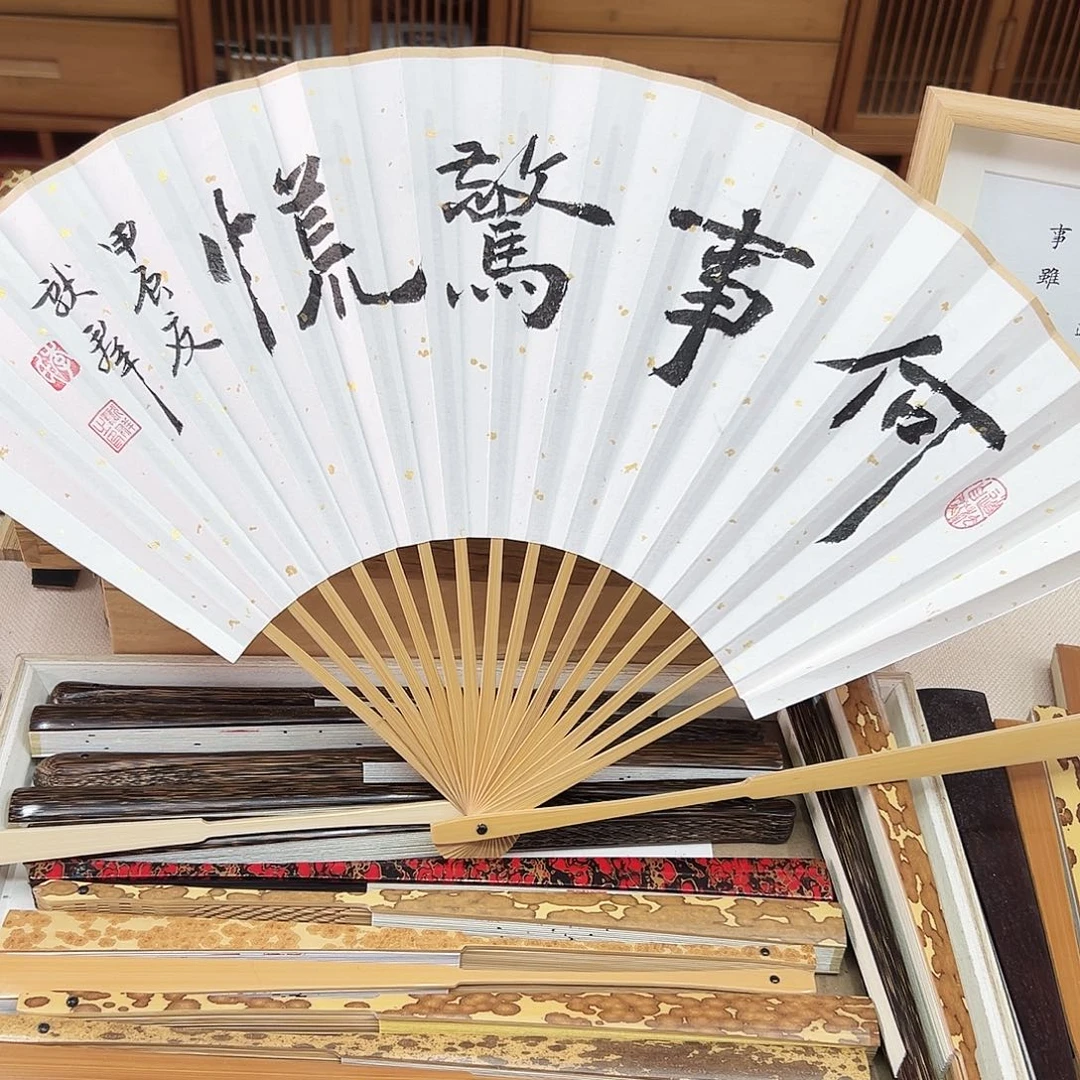 何事驚慌
甲辰夏
事
雖